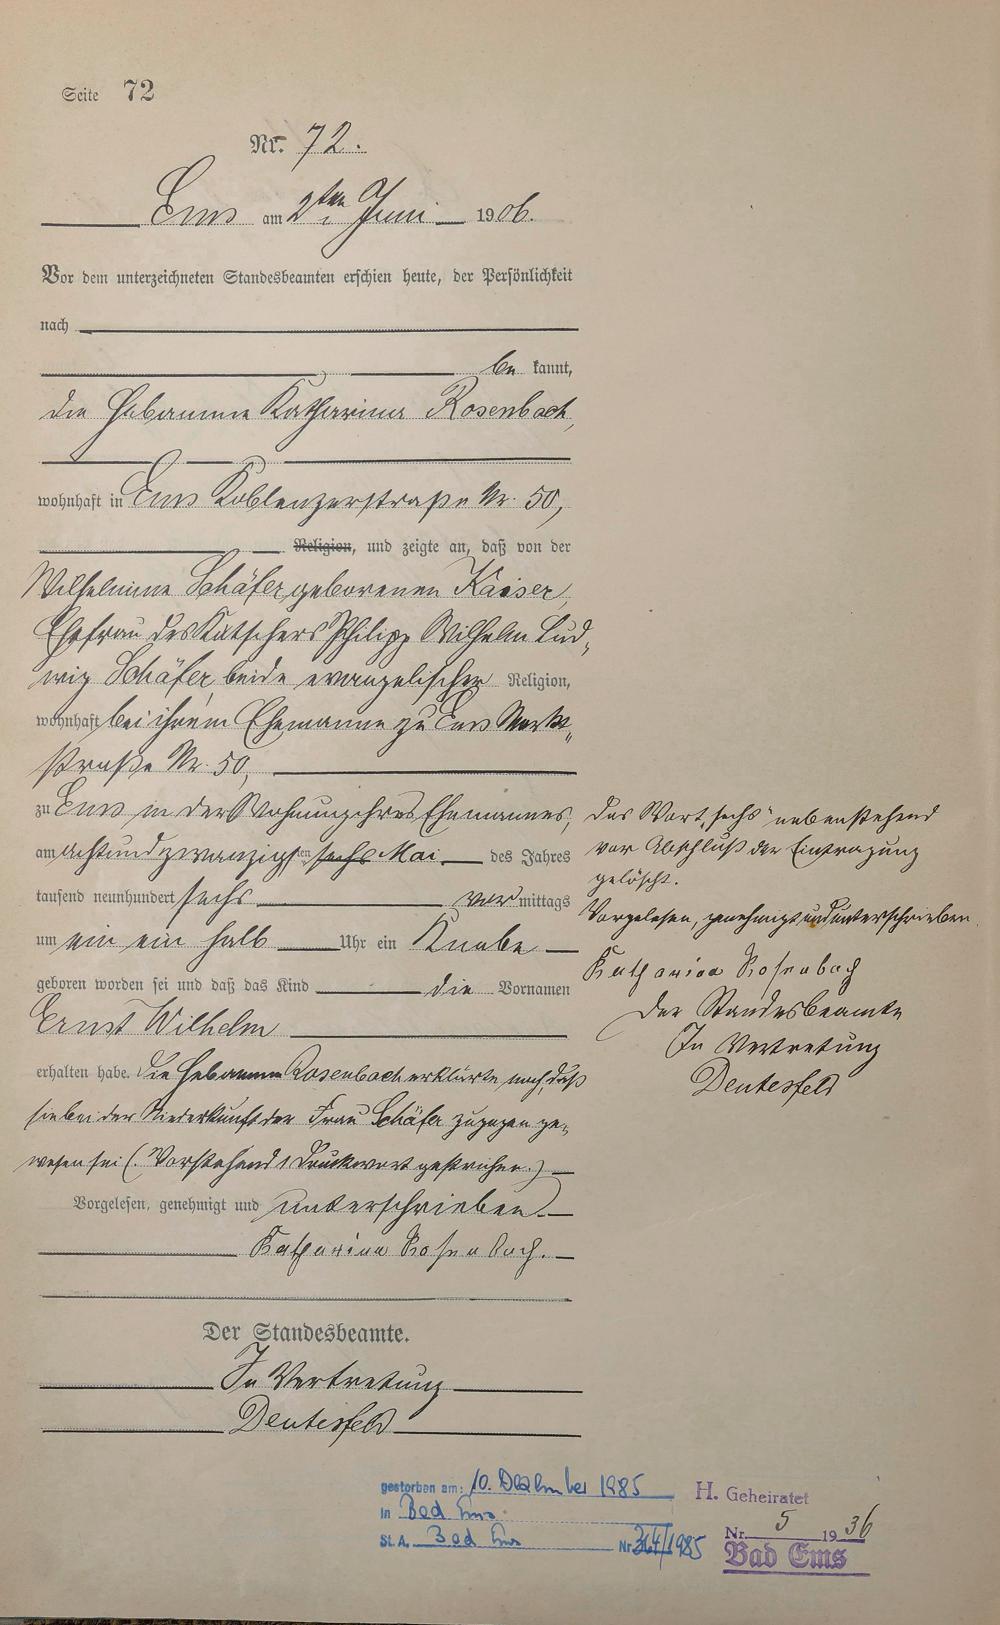 Seite 72
Nr. 72.
Ems am 2ten Juni 1906.
Vor dem unterzeichneten Standesbeamten erschien heute, der Persönlichkeit
nach
be kannt,
die Hebamme Katharina Rosenbach,
wohnhaft in Ems Koblenzerstraße Nr. 50,
Religion, und zeigte an, daß von der
Wilhelmine Schäfer geborenen Kaiser,
Ehefrau des Kutschers Philipp Wilhelm Lud-
wig Schäfer, beide evangelischer Religion,
wohnhaft bei ihrem Ehemanne zu Ems
straße Nr. 50,
zu Ems in der Wohnung ihres Ehemannes,
am achtundzwanzigsten sechs Mai des Jahres
tausend neunhundert sechs vor mittags
um ein ein halb Uhr ein Knabe
geboren worden sei und daß das Kind die Vornamen
Ernst Wilhelm
erhalten habe. Die Hebamme Rosenbach erklärte noch, daß
sie bei der Niederkunft der Frau Schäfer zugegen ge-
wesen sei (. Vorstehend 1 Druckwort gestrichen.)
Vorgelesen, genehmigt und unterschrieben.
Katharina Rosenbach.
Der Standesbeamte.
In Vertretung
Das Wort „sechs“ nebenstehend
vor Abschluß der Eintragung
gelöscht.
Vorgelesen, genehmigt und unterschrieben
Katharina Rosenbach
Der Standesbeamte
In Vertretung
gestorben am: 10. Dezember 1985
in Bad Ems
St. A. Bad Ems Nr. /1985
H. Geheiratet
Nr. 5 1936
Bad Ems